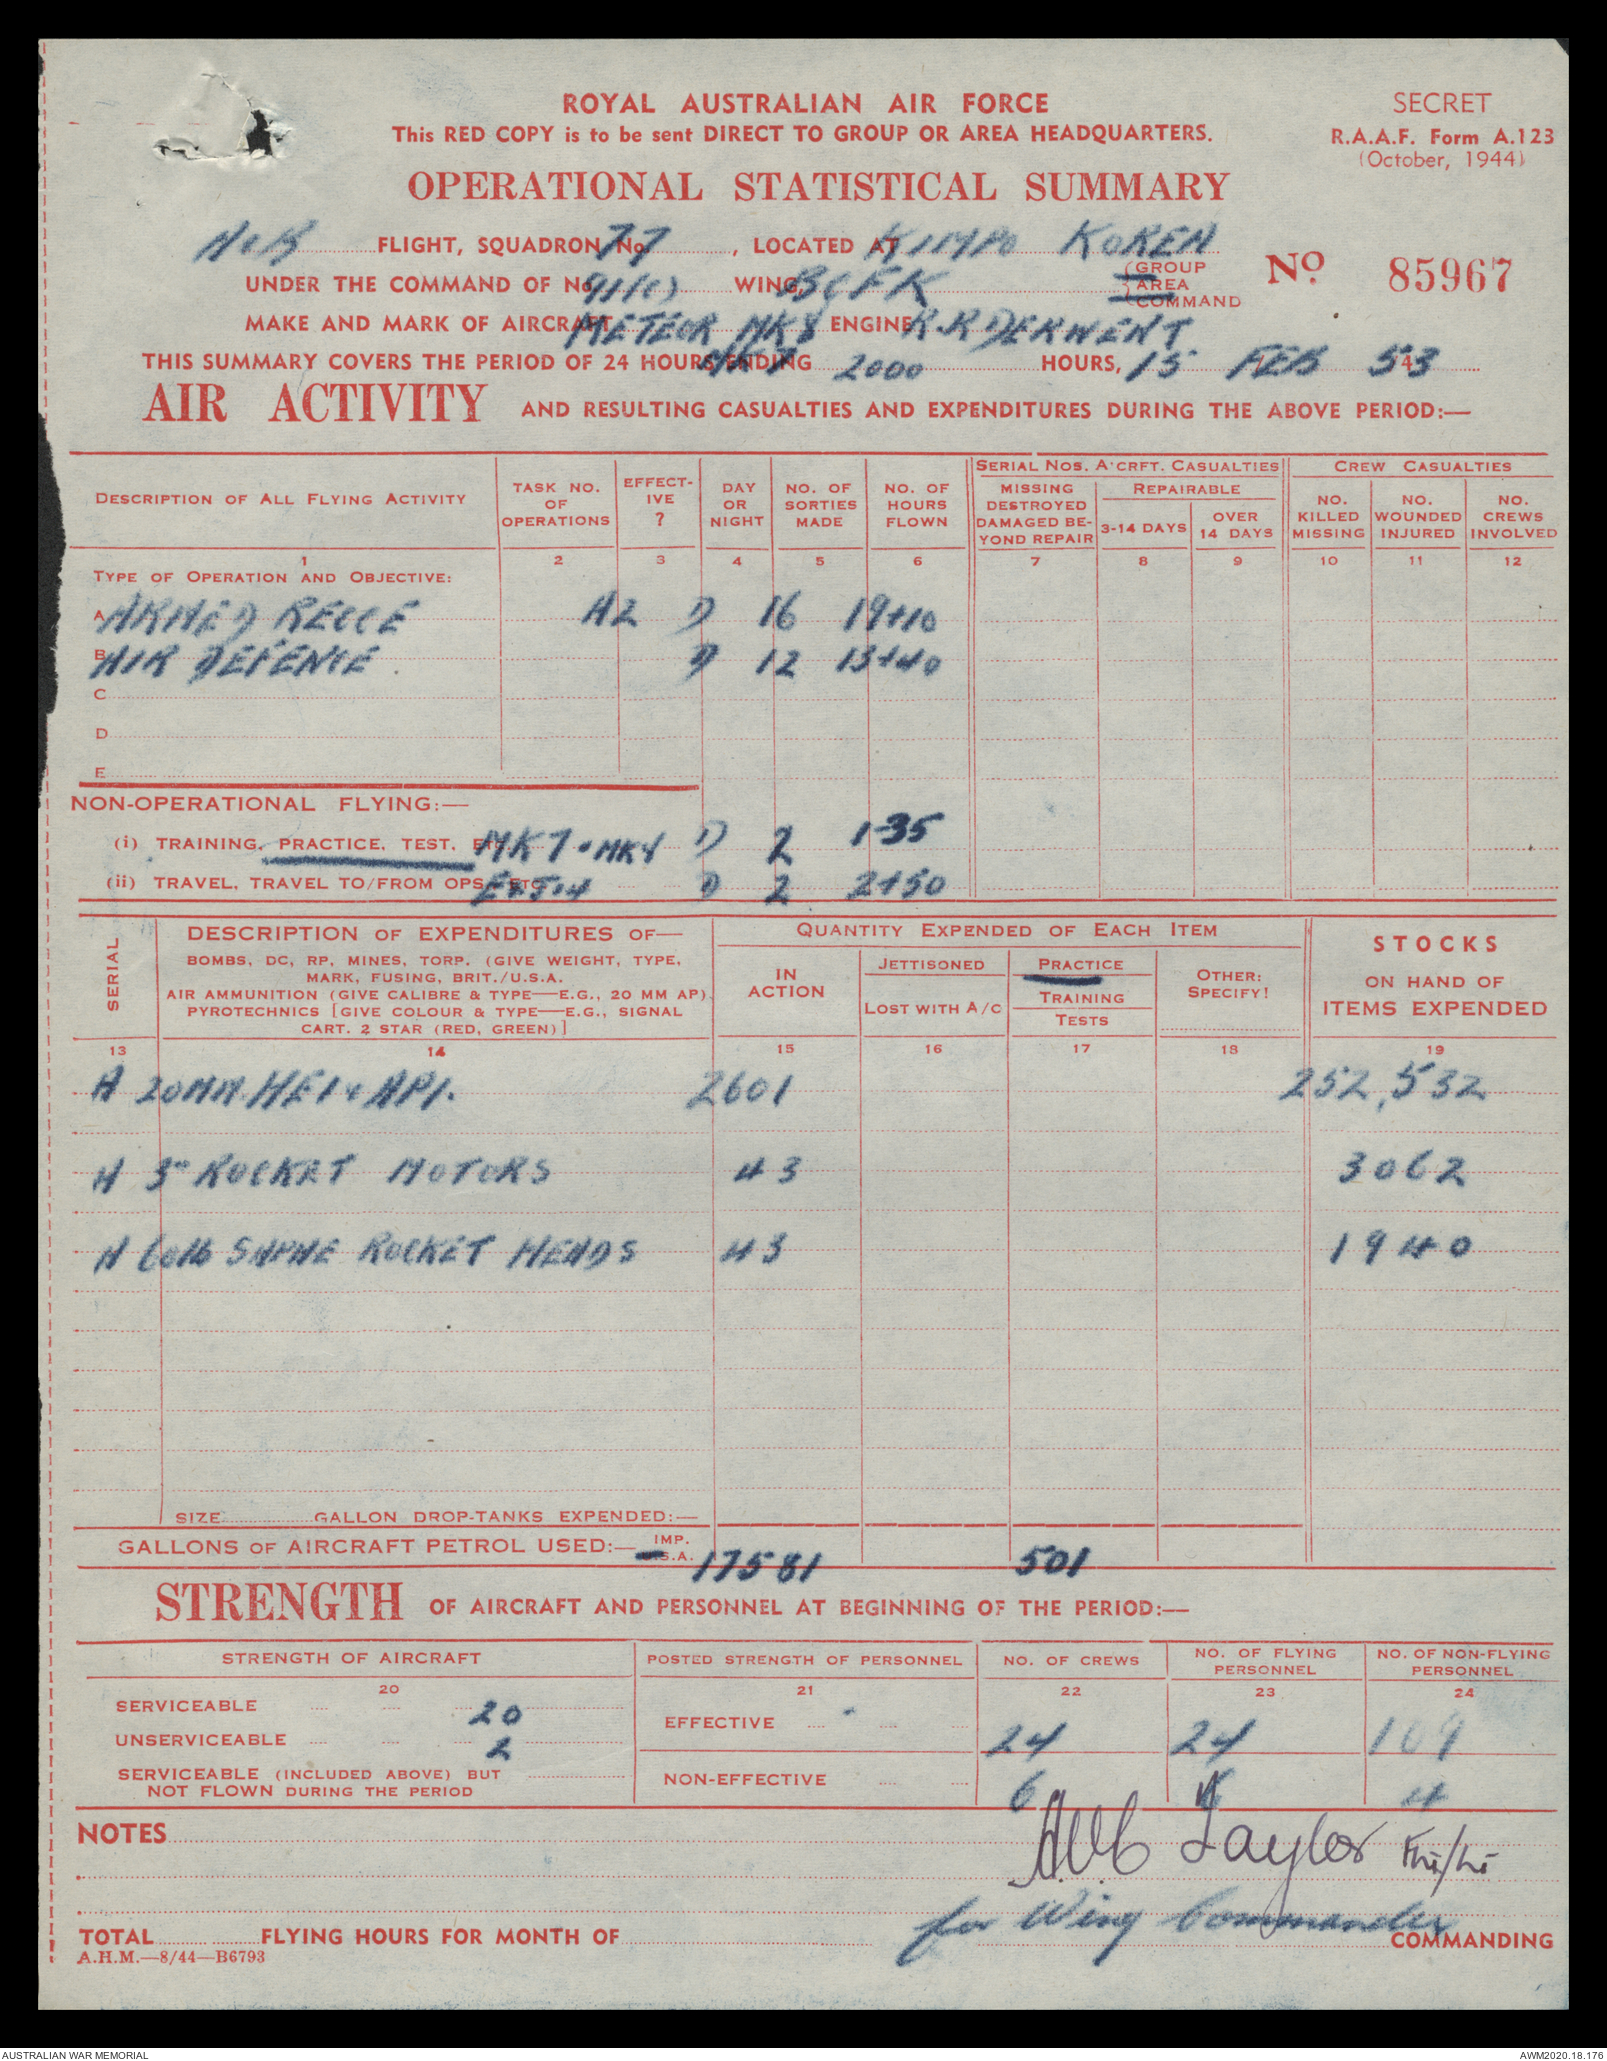 ROYAL AUSTRALIAN AIR FORCE
SECRET
This RED COPY is to be sent DIRECT TO GROUP OR AREA HEADQUARTERS.
R.A.A.F. Form A.123
(October, 1944)
OPERATIONAL STATISTICAL SUMMARY
A & B FLIGHT, SQUADRON No. 77, LOCATED AT KIMPO KOREA
UNDER THE COMMAND OF No. 91(C) WING, BCFK (GROUP AREA COMMAND
No 85967
MAKE AND MARK OF AIRCRAFT METEOR MK8 ENGINE R.R DERWENT
THIS SUMMARY COVERS THE PERIOD OF 24 HOURS ENDING MK7 2000 HOURS, 15 FEB 53
AIR ACTIVITY AND RESULTING CASUALTIES AND EXPENDITURES DURING THE ABOVE PERIOD:—
DESCRIPTION OF ALL FLYING ACTIVITY
TASK NO. OF OPERATIONS
EFFECT-IVE ?
DAY OR NIGHT
NO. OF SORTIES MADE
NO. OF HOURS FLOWN
SERIAL NOS. A'CRFT. CASUALTIES
MISSING DESTROYED DAMAGED BE-YOND REPAIR
REPAIRABLE
3-14 DAYS
OVER 14 DAYS
CREW CASUALTIES
NO. KILLED MISSING
NO. WOUNDED INJURED
NO. CREWS INVOLVED
1 2 3 4 5 6 7 8 9 10 11 12
TYPE OF OPERATION AND OBJECTIVE:
A ARMED RECCE A2 D 16 19+10
B AIR DEFENCE D 12 13+40
C
D
E
NON-OPERATIONAL FLYING:—
(i) TRAINING, PRACTICE, TEST, ETC. MK7 & MK4 D 2 1-35
(ii) TRAVEL, TRAVEL TO/FROM OPS., ETC. D 2 2+50
SERIAL
DESCRIPTION OF EXPENDITURES OF—
BOMBS, DC, RP, MINES, TORP. (GIVE WEIGHT, TYPE,
MARK, FUSING, BRIT./U.S.A.
AIR AMMUNITION (GIVE CALIBRE & TYPE—E.G., 20 MM AP)
PYROTECHNICS [GIVE COLOUR & TYPE—E.G., SIGNAL
CART. 2 STAR (RED, GREEN)]
QUANTITY EXPENDED OF EACH ITEM
IN ACTION
JETTISONED
LOST WITH A/C
PRACTICE
TRAINING
TESTS
OTHER: SPECIFY!
STOCKS
ON HAND OF
ITEMS EXPENDED
13 14 15 16 17 18 19
A 20MM. HEI & API. 2601 252,532
A 3" ROCKET MOTORS 43 3062
A 60lb SAPHE ROCKET HEADS 43 1940
SIZE GALLON DROP-TANKS EXPENDED:—
GALLONS OF AIRCRAFT PETROL USED:— IMP. U.S.A. 17581 501
STRENGTH OF AIRCRAFT AND PERSONNEL AT BEGINNING OF THE PERIOD:—
STRENGTH OF AIRCRAFT
POSTED STRENGTH OF PERSONNEL
NO. OF CREWS
NO. OF FLYING PERSONNEL
NO. OF NON-FLYING PERSONNEL
20 21 22 23 24
SERVICEABLE 20
UNSERVICEABLE 2
SERVICEABLE (INCLUDED ABOVE) BUT
NOT FLOWN DURING THE PERIOD
EFFECTIVE 24 24 109
NON-EFFECTIVE 6 4
NOTES
Taylor Flt/Lt
for Wing Commander
TOTAL FLYING HOURS FOR MONTH OF COMMANDING
A.H.M.—8/44—B6793
AUSTRALIAN WAR MEMORIAL
AWM2020.18.176